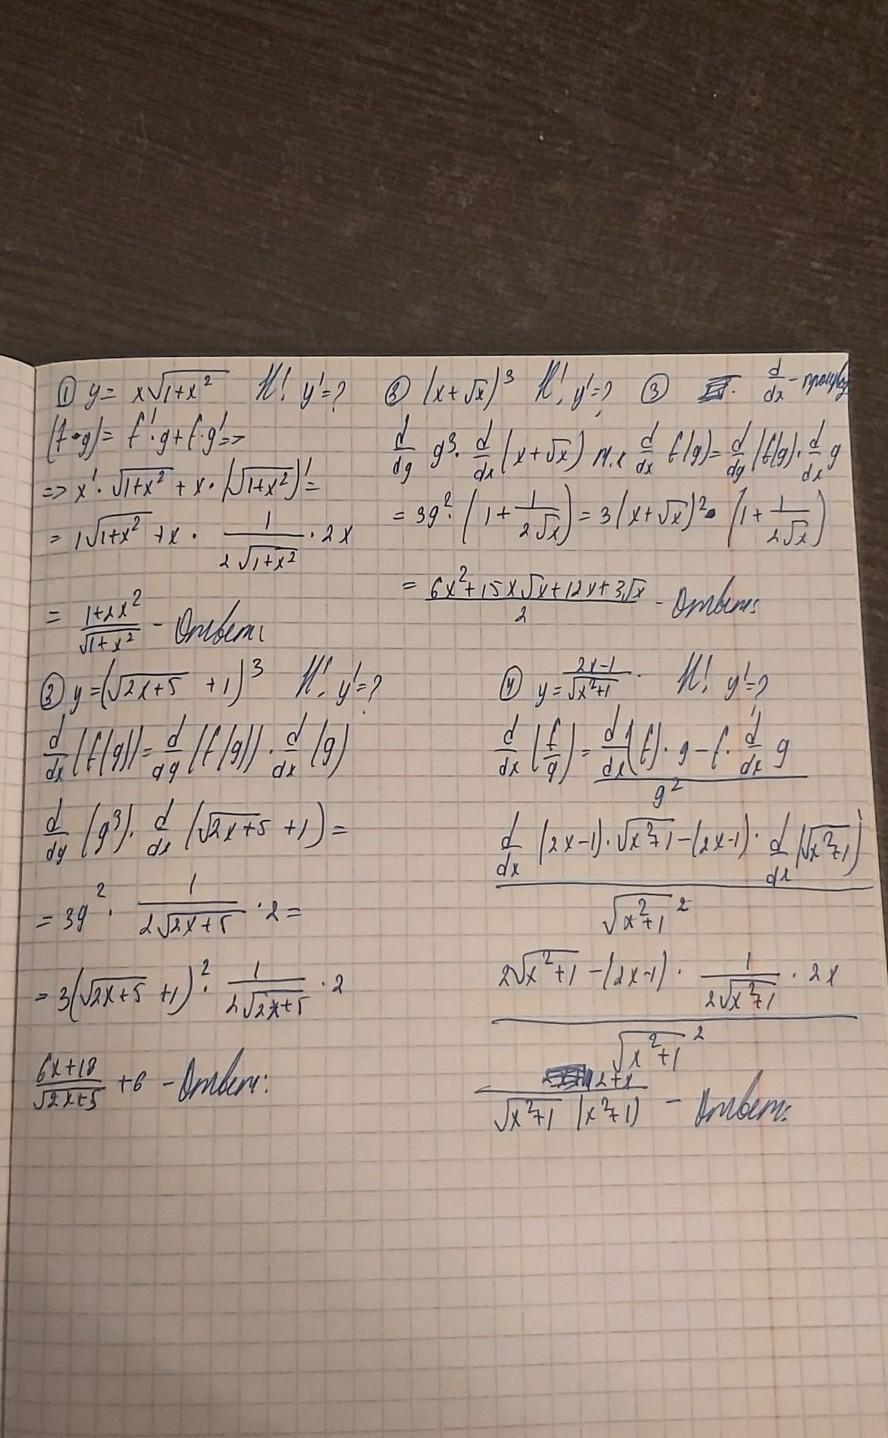 ① y = x√(1+x²) Н! y'=?
(f·g)' = f'·g+f·g' =>
=> x'·√(1+x²) + x·(√(1+x²))' =
= 1√(1+x²) + x · 1/(2√(1+x²)) · 2x
= (1+2x²)/√(1+x²) - Ответ:
② (x+√x)³ Н!, y'=? ③ d/dx -
d/dg g³ · d/dx (x+√x) т.к d/dx f(g) = d/dg (f(g)) · d/dx g
= 3g² · (1 + 1/(2√x)) = 3(x+√x)² · (1 + 1/(2√x))
= (6x²+15x√x+12x+3√x)/2 - Ответ:
③ y = (√(2x+5) +1)³ Н!, y'=?
d/dx (f(g)) = d/dg (f(g)) · d/dx (g)
d/dg (g³) · d/dx (√(2x+5) +1) =
= 3g² · 1/(2√(2x+5)) · 2 =
= 3(√(2x+5) +1)² · 1/(2√(2x+5)) · 2
(6x+18)/√(2x+5) +6 - Ответ:
④ y = (2x-1)/√(x²+1) Н! y'=?
d/dx (f/g) = (d/dx (f) · g - f · d/dx g)/g²
(d/dx (2x-1)·√(x²+1) - (2x-1) · d/dx (√(x²+1)))/√(x²+1)²
(2√(x²+1) - (2x-1) · 1/(2√(x²+1)) · 2x)/√(x²+1)²
(2+x)/(√(x²+1) (x²+1)) - Ответ: